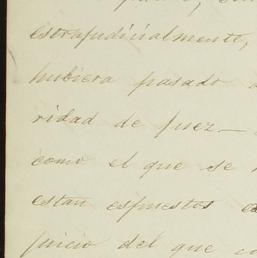 estrajudicialmente,
hubiera pasado
ridad de juez—
como el que se
estan espuestos
juicio del que